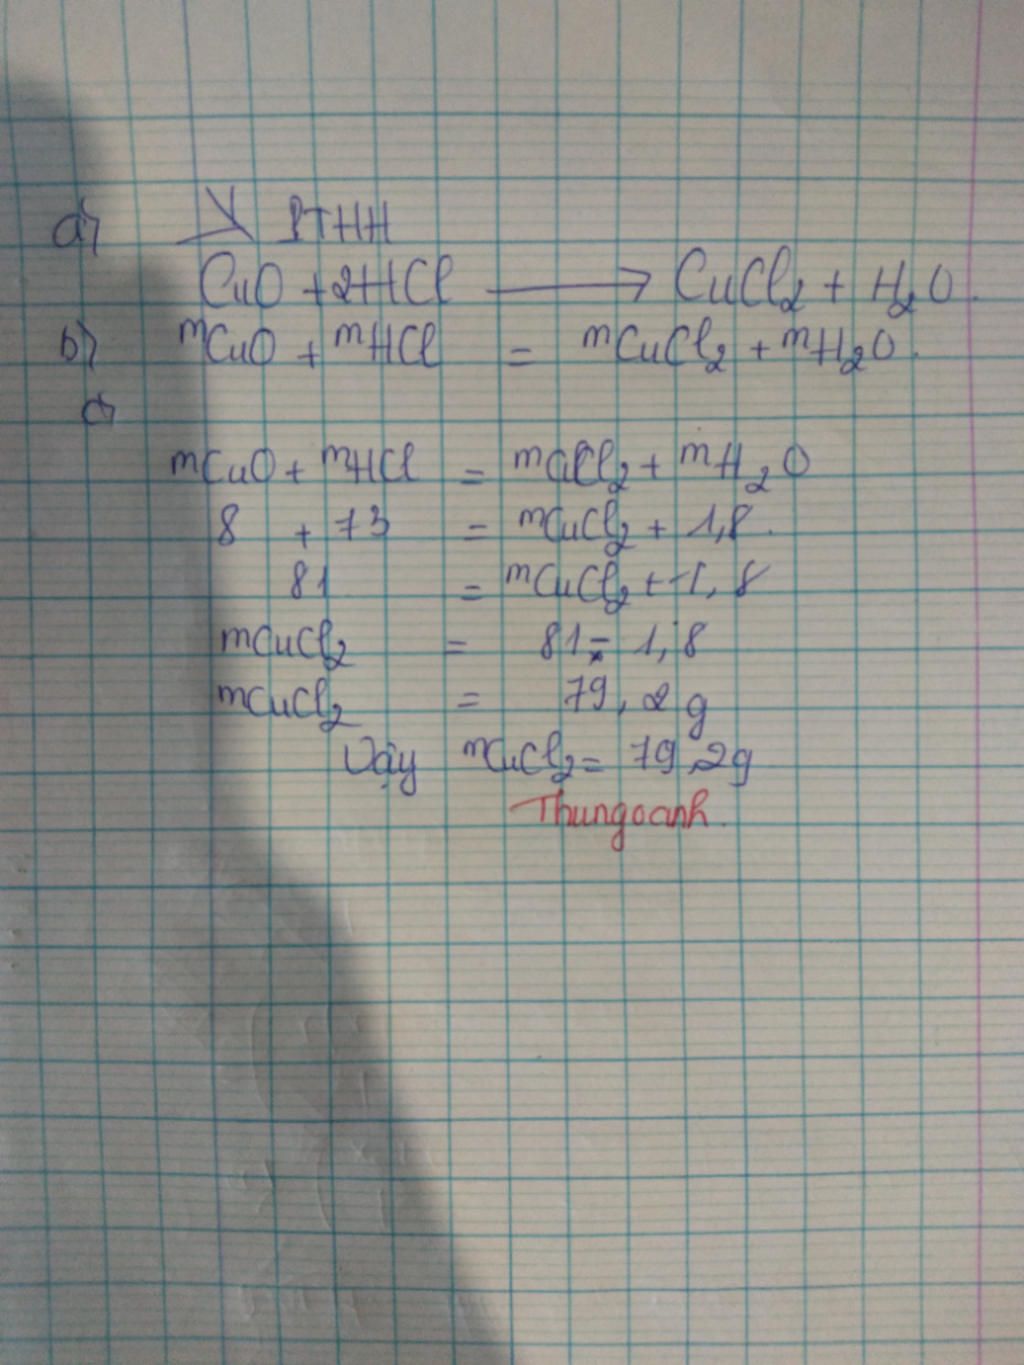 a) PTHH
CuO + 2HCl → CuCl2 + H2O.
b) mCuO + mHCl = mCuCl2 + mH2O.
c)
mCuO + mHCl = mCuCl2 + mH2O
8 + 73 = mCuCl2 + 1,8.
81 = mCuCl2 + 1,8
mCuCl2 = 81 - 1,8
mCuCl2 = 79,2 g
Vậy mCuCl2 = 79,2g
Thungoanh.